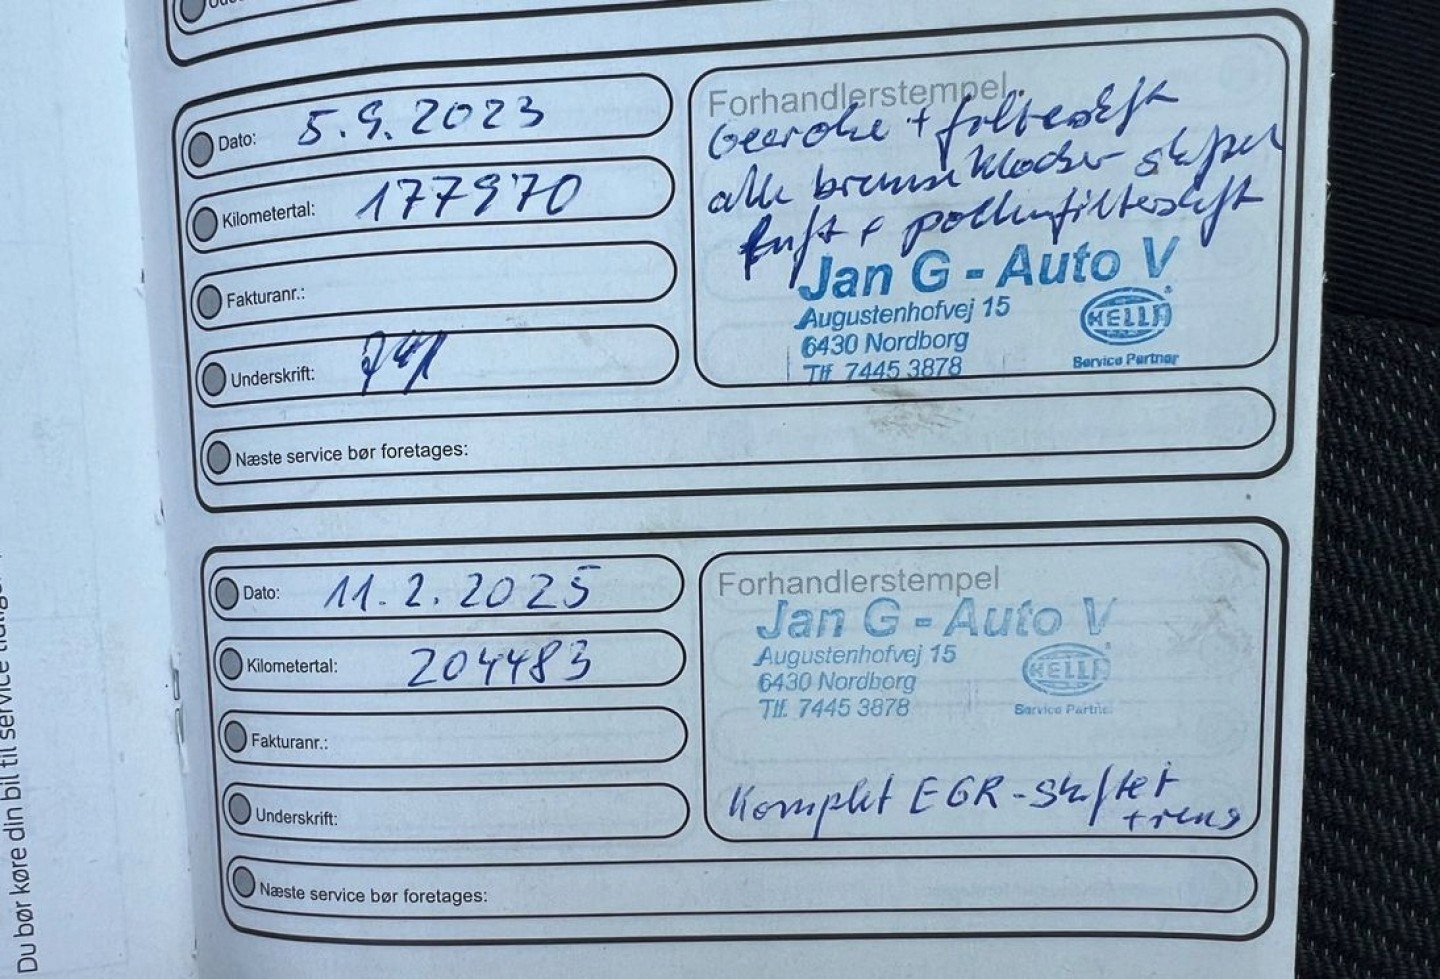 Dato: 5.9.2023
Kilometertal: 177970
Fakturanr.:
Underskrift:
Næste service bør foretages:
Forhandlerstempel
+ filterskift
alle bremseklodser skiftet
luft + pollenfilterskift
Jan G - Auto V
Augustenhofvej 15
6430 Nordborg
Tlf. 7445 3878
HELLA
Service Partner
Dato: 11.2.2025
Kilometertal: 204483
Fakturanr.:
Underskrift:
Næste service bør foretages:
Forhandlerstempel
Jan G - Auto V
Augustenhofvej 15
6430 Nordborg
Tlf. 7445 3878
HELLA
Service Partner
Komplet EGR-skiftet
+ rens
Du bør køre din bil til service